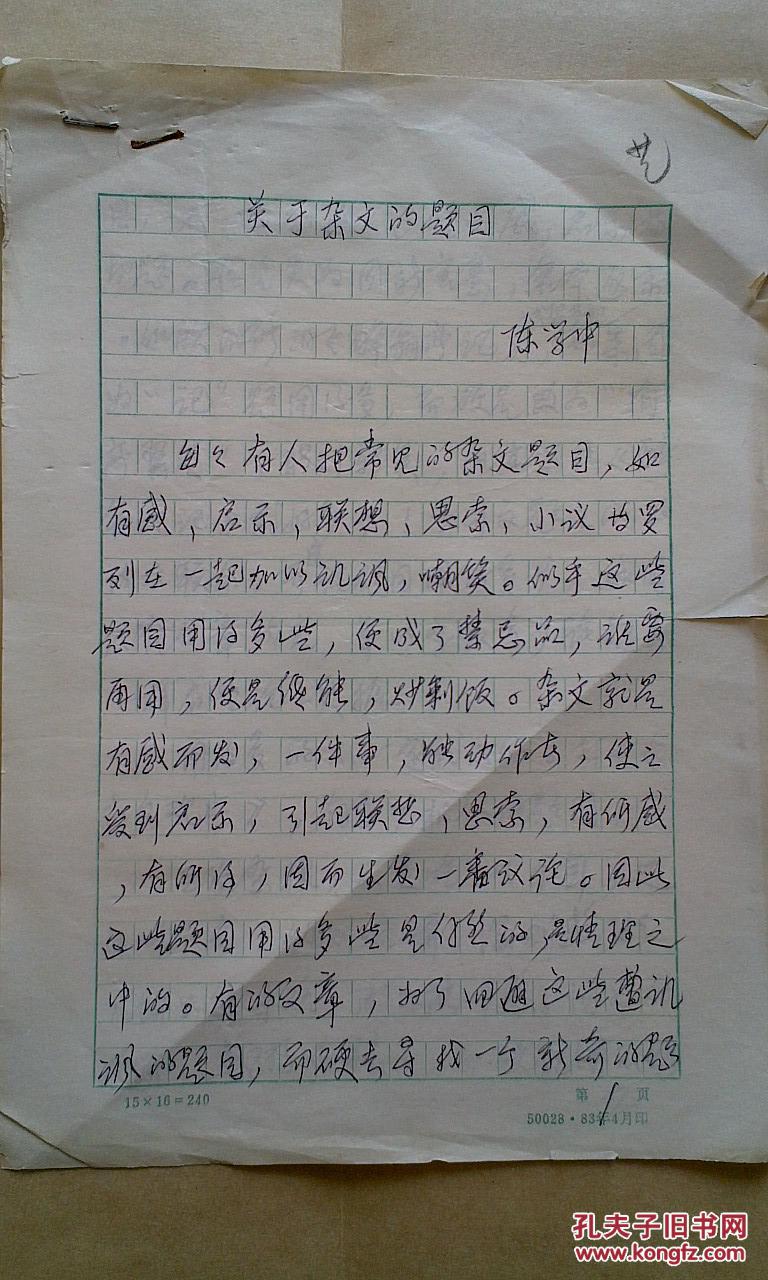 艺
关于杂文的题目
陈学中
每每有人把常见的杂文题目，如
有感，启示，联想，思索，小议等罗
列在一起加以讥讽，嘲笑。似乎这些
题目用得多些，便成了禁忌品，谁要
再用，便是低能，炒剩饭。杂文就是
有感而发，一件事，触动作者，使之
受到启示，引起联想，思索，有所感
，有所得，因而生发一番议论。因此
这些题目用得多些是自然的，是情理之
中的。有的文章，为了回避这些遭讥
讽的题目，而硬去寻找一个新奇的题
15×16=240
第1页
50028·83年4月印
孔夫子旧书网
www.kongfz.com